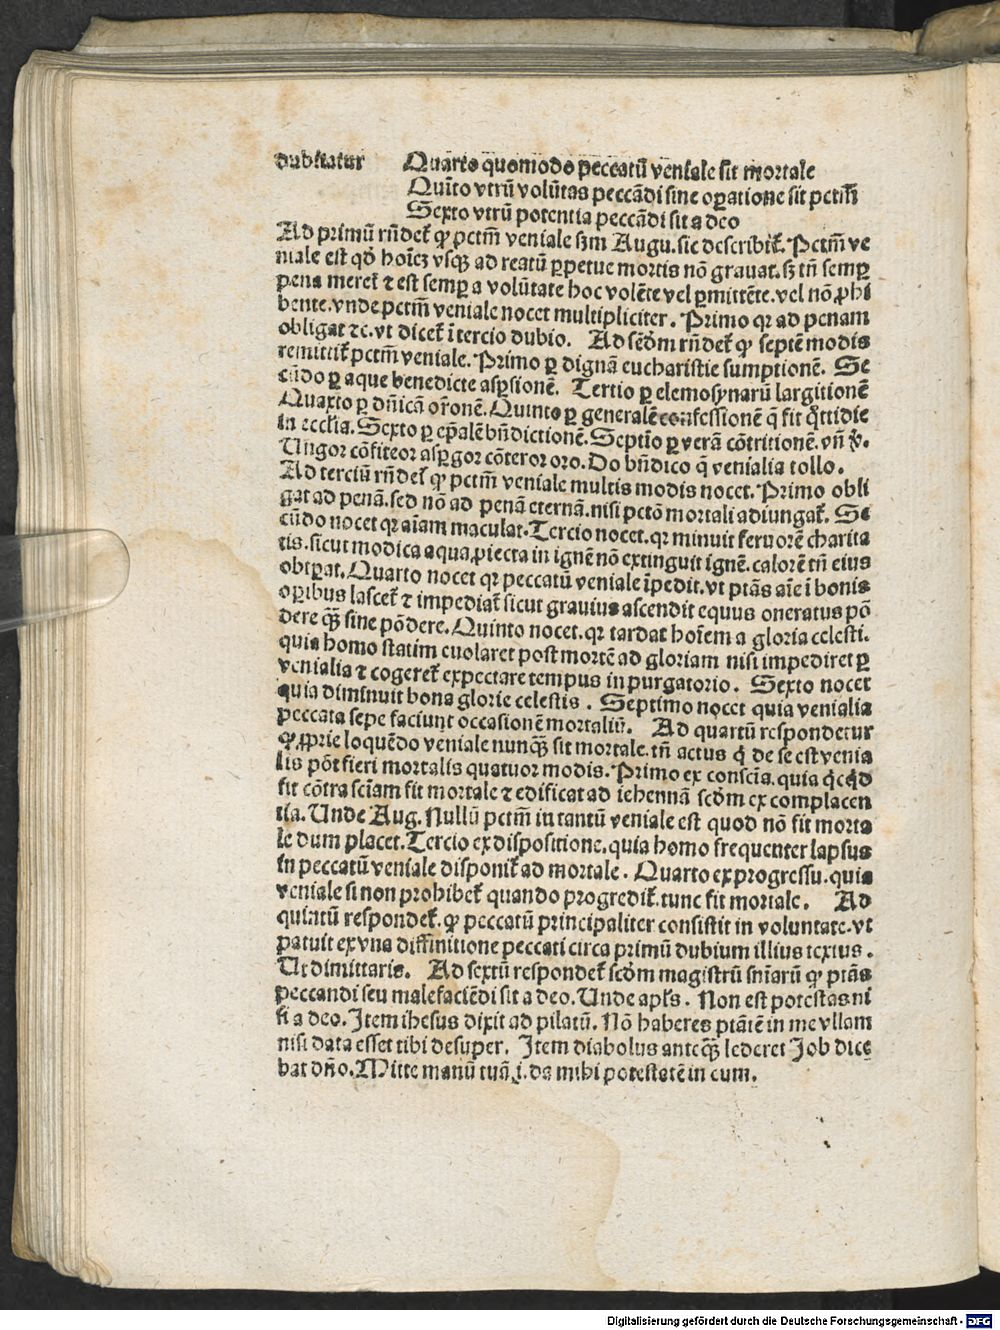 dubitatur Quarto quomodo peccatū veniale sit mortale
Quīto vtrū volūtas peccādi sine oꝑatione sit pctm̄
Sexto vtrū potentia peccādi sit a deo
Ad primū rn̄det̉ ꝙ pctm̄ veniale ẜm Augu. sic describit̉. Pctm̄ ve
niale est qd̓ hoīeꝫ vsqꝫ ad reatū ꝑpetue mortis nō grauat. sꝫ tn̄ semꝑ
pena meret̉ ⁊ est semꝑ a volūtate hoc volēte vel ꝑmittēte. vel nō ꝓhi
bente. vnde pctm̄ veniale nocet multipliciter. Primo qꝛ ad penam
obligat ⁊c. vt dicet̉ ī tercio dubio. Ad scd̓m rn̄det̉ ꝙ septē modis
remittit̉ pctm̄ veniale. Primo ꝑ dignā eucharistie sumptionē. Se
cūdo ꝑ aque benedicte asꝑsionē. Tertio ꝑ elemosynarū largitionē
Quarto ꝑ dn̄icā or̄onē. Quinto ꝑ generalē confessionē q̄ fit q̊ttidie
in eccl̓ia. Sexto ꝑ ep̄alē bn̄dictionē. Septīo ꝑ verā cōtritionē. vn̄ v̓.
Ungor cōfiteor asꝑgor cōteror oro. Do bn̄dico q̄ venialia tollo.
Ad terciū rn̄det̉ ꝙ pctm̄ veniale multis modis nocet. Primo obli
gat ad penā. sed nō ad penā eternā. nisi pctō mortali adiungat̉. Se
cūdo nocet qꝛ aīam maculat. Tercio nocet. qꝛ minuit feruorē charita
tis. sicut modica aqua ꝓiecta in ignē nō extinguit ignē. calorē tn̄ eius
obtꝑat. Quarto nocet qꝛ peccatū veniale īpedit. vt ptās aīe ī bonis
oꝑibus lascet̉ ⁊ impediat̉ sicut grauius ascendit equus oneratus pō
dere qꝫ̄ sine pōdere. Quinto nocet. qꝛ tardat hoīem a gloria celesti.
quia homo statim euolaret post mortē ad gloriam nisi impediret ꝑ
venialia ⁊ cogeret̉ expectare tempus in purgatorio. Sexto nocet
quia diminuit bona glorie celestis. Septimo nocet quia venialia
peccata sepe faciunt occasionē mortaliū. Ad quartū respondetur
ꝙ ꝓprie loquēdo veniale nunqꝫ̄ sit mortale. tn̄ actus q̇ de se est venia
lis pōt fieri mortalis quatuor modis. Primo ex consciā. quia q̇cqd̓
fit cōtra sciam fit mortale ⁊ edificat ad iehennā scd̓m ex complacen
tia. Unde Aug. Nullū pctm̄ in tantū veniale est quod nō fit morta
le dum placet. Tercio ex dispositione. quia homo frequenter lapsus
in peccatū veniale disponit̉ ad mortale. Quarto ex progressu. quia
veniale si non prohibet̉ quando progredit̉. tunc fit mortale. Ad
quintū respondet̉. ꝙ peccatū principaliter consistit in voluntate. vt
patuit ex vna diffinitione peccati circa primū dubium illius textus.
Ut dimittaris. Ad sextū respondet̉ scd̓m magistrū sn̄iarū ꝙ ptās
peccandi seu malefaciēdi sit a deo. Unde apl̓s. Non est potestas ni
si a deo. Item ihesus dixit ad pilatū. Nō haberes ptātē in me vllam
nisi data esset tibi desuper. Item diabolus anteqꝫ̄ lederet Job dice
bat dn̄o. Mitte manū tuā .i. da mihi potestatē in eum.
Digitalisierung gefördert durch die Deutsche Forschungsgemeinschaft - DFG